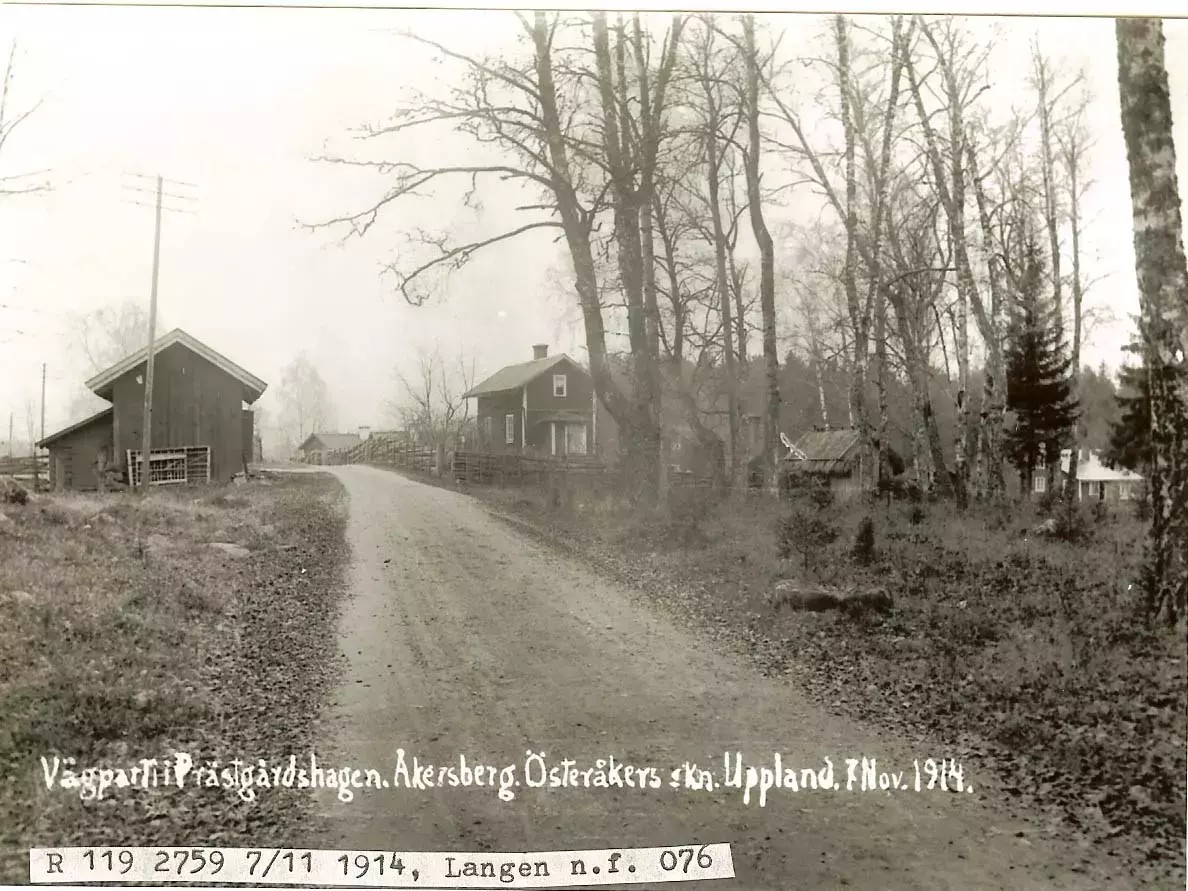 Vägparti i Prästgårdshagen. Åkersberg. Österåkers skn. Uppland. 7 Nov. 1914.
R 119 2759 7/11 1914, Langen n.f. 076